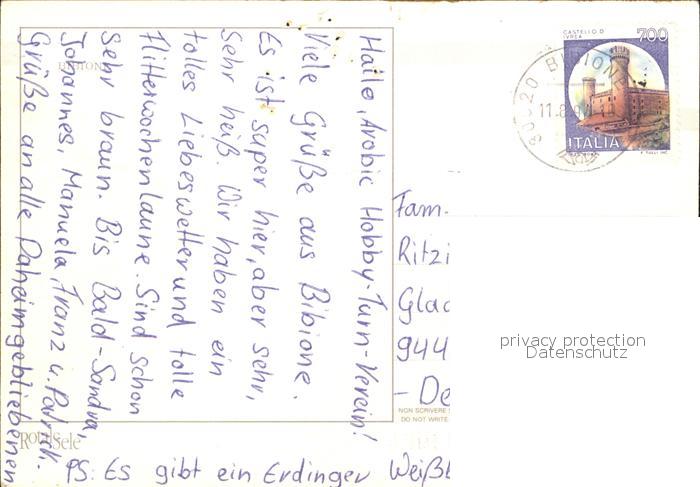 Hallo, Arobic Hobby-Turn-Verein!
Viele Grüße aus Bibione.
Es ist super hier, aber sehr,
sehr heiß. Wir haben ein
tolles Liebeswetter und tolle
Flitterwochenlaune. Sind schon
sehr braun. Bis Bald - Sandra,
Johannes, Manuela, Franz u. Patrick.
Grüße an alle Daheimgebliebenen
PS: Es gibt ein Erdinger Weißb
BIBIONE
CASTELLO D'IVREA
700
ITALIA
30020 BIBIONE
Fam.
Ritzi
Glac
944
- De
NON SCRIVERE
DO NOT WRITE
privacy protection
Datenschutz